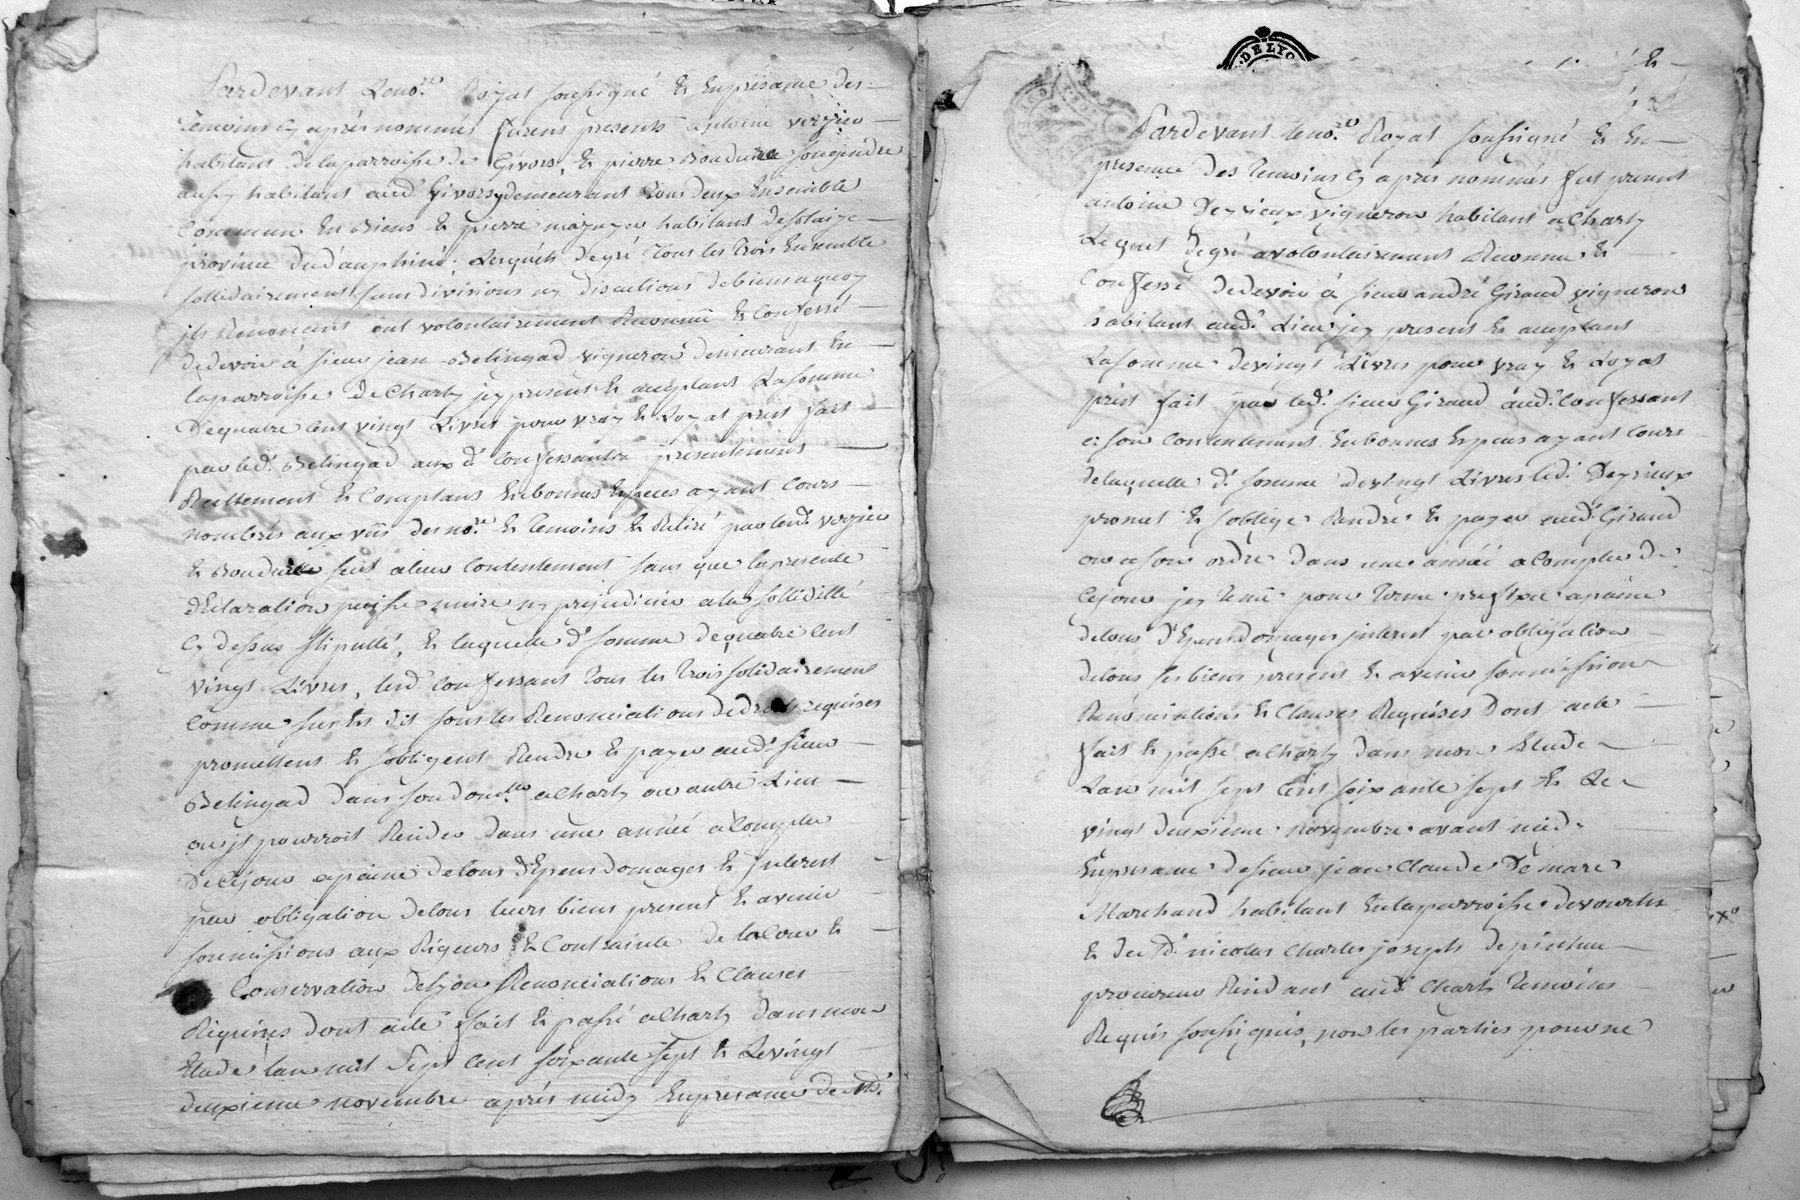 Pardevant Leno.re Royal soussigné Et Enpresance des
Temoins Cy aprés nommés furens presents antoine verzieu
habitant delaparroisse de Givors, Et pierre Boudu songendre
aussy habitant aud. Givors ydemeurant tous deux Ensemble
Commun En Biens Et pierre mazuyer habitant desolaize
province dudauphiné; Lesquels degré Tous les Trois Ensemble
sollidairement sans divisions ny discutions debiens aquoy
jls Renoncent ont volontairement Reconnu Et Confessé
dedevoir à sieur jean Belingad vigneron demeurant En
laparroisse De Charly jcy present Et aceptant Lasomme
Dequatre Cent vingt Livres pour vray Et Loyal prest fait
par led. Belingad aux d. Confessants presentement
Reellement Et Comptans Enbonnes Especes ayant Cours
nombrés aux vus desno.re Et Temoins Et Retiré par lesd. verzieu
Et Boudu seul aleur Contentement sans que lapresente
déclaration puisse nuire ny prejudicier ala sollidité
Cy dessus stipullé, Et laquelle d. somme dequatre Cent
vingt Livres, lesd. Confessant Tous les trois solidairement
Comme sus Est dit sous les Renonciations dedroit requises
promettent Et sobligent Rendre Et payer aud. sieur
Belingad dans sondom.lle aCharly ou autre Lieu
ou jl pourroit Resider dans une année aCompter
DeCejour apaine detous dépens domages Et jnterest
par obligation detous leurs biens present Et avenir
soumissions aux Rigueurs Et Contrainte de laCour Et
Conservation delyon Renonciations Et Clauses
Requises dont acte fait Et passé aCharly dansmon
Etude Lan mil sept Cent soixante sept Et Levingt
deuxieme novembre aprés midy Enpresance de Md.
DELYO
Pardevant leno.re Royal soussigné Et En
presence des Temoins Cy apres nommés fut present
antoine Deyrieux vigneron habitant aCharly
Lequel degré avolontairement Reconnu Et
Confessé dedevoir à sieur andré Giraud vigneron
habitant aud. Lieu jcy present Et aceptant
Lasomme devingt Livres pour vray Et Loyal
prest fait par led. sieur Giraud aud. Confessant
a son Contentement Enbonnes Especes ayant Cours
delaquelle d. somme devingt Livres led. Deyrieux
promet Et soblige Rendre Et payer aud. Giraud
ou asou ordre dans une année aCompter de
Cejour jcy Tenu pour Terme prefixe apaine
detous d'Epens domages jnterest par obligation
detous ses biens present Et avenir soumission
Renonciations Et Clauses Requises dont acte
fait Et passé aCharly dans mon Etude
Lan mil sept Cent soixante sept Et Le
vingt deuxieme novembre avant midi
Enpresance desieur jean Claude Demare
Marchand habitant Enlaparroisse devourles
Et de Md. nicolas Charles joseph depinteu
procureur Residant aud. Charly Temoins
Requis soussignés, non les parties pour ne